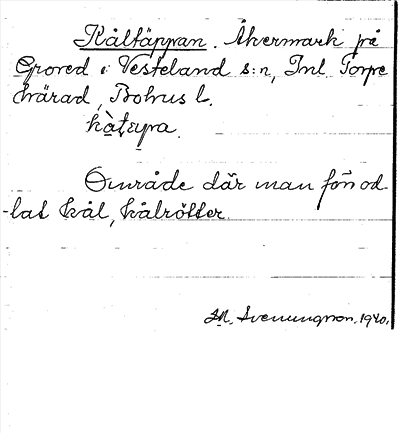 Kåltäppan. Åkermark på
Grored i Vesteland s:n, Inl. Torpe
härad, Bohus l.
kàtɛpa.
Område där man förr od-
lat kål, kålrötter.
M. Svenungson. 1940.